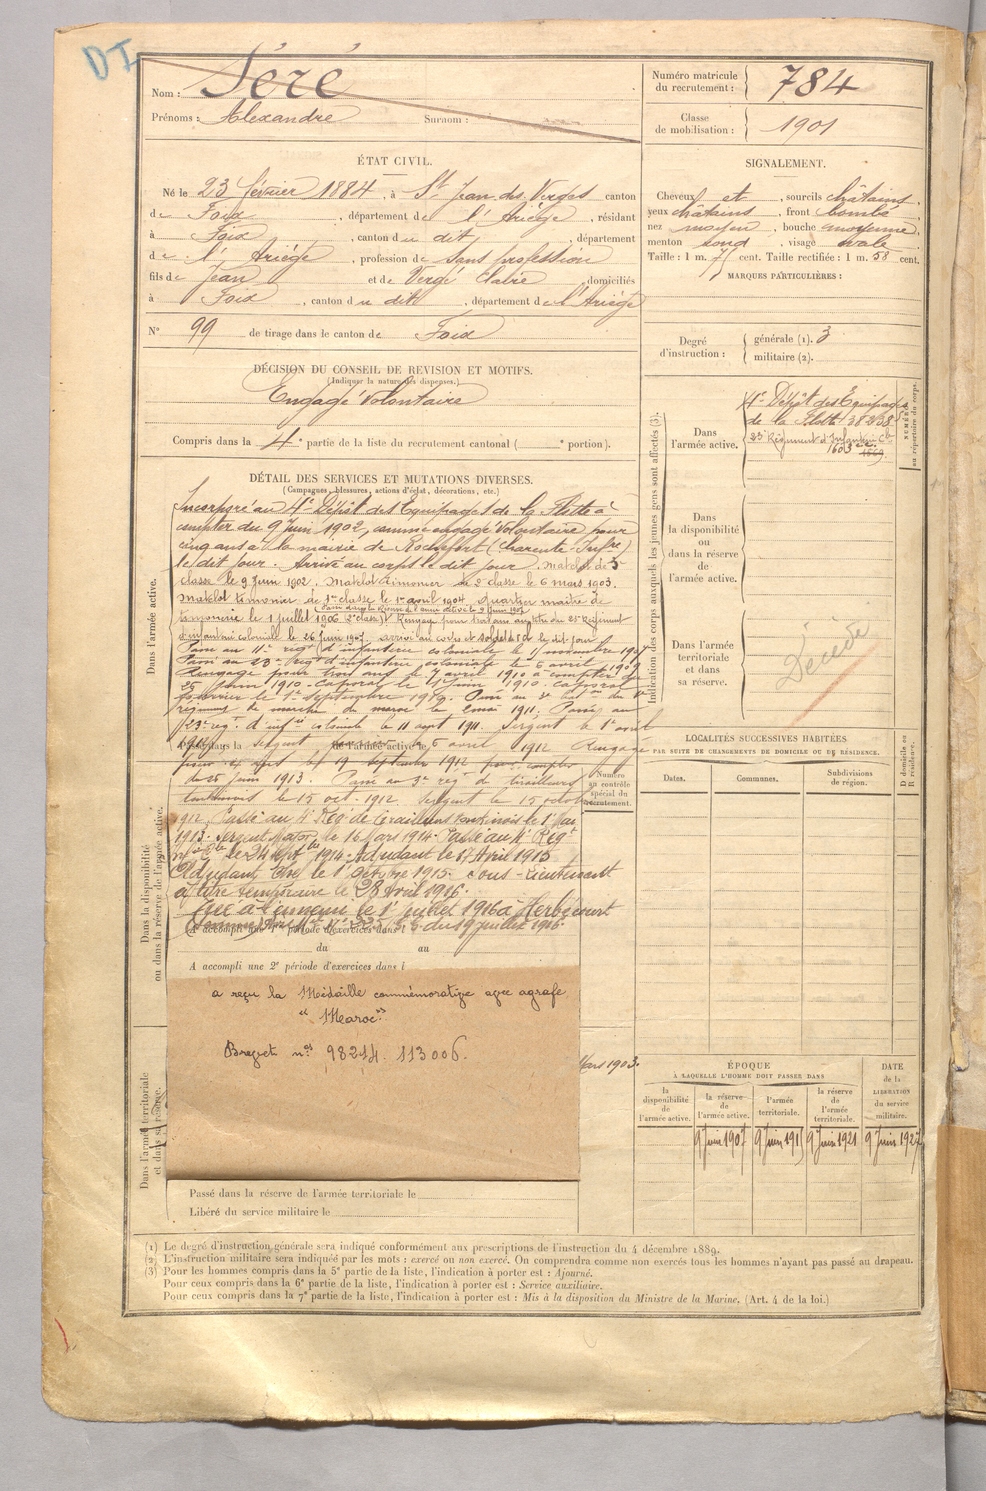 DI
Nom : Séré
Prénoms : Alexandre Surnom :
Numéro matricule du recrutement : 784
Classe de mobilisation : 1901
ÉTAT CIVIL.
Né le 23 février 1884, à St Jean des Verges canton
de Foix, département de l'Ariège, résidant
à Foix, canton du dit, département
de l'Ariège, profession de sans profession
fils de Jean et de Vergé Claire domiciliés
à Foix, canton du dit, département de l'Ariège
N° 99 de tirage dans le canton de Foix
SIGNALEMENT.
Cheveux et, sourcils châtains,
yeux châtains, front bombé,
nez moyen, bouche moyenne,
menton rond, visage ovale
Taille : 1 m. cent. Taille rectifiée : 1 m. 58 cent.
MARQUES PARTICULIÈRES :
Degré d'instruction : générale (1). 3
militaire (2).
DÉCISION DU CONSEIL DE REVISION ET MOTIFS.
(Indiquer la nature des dispenses.)
Engagé Volontaire
Compris dans la 4e partie de la liste du recrutement cantonal ( e portion).
Indication des corps auxquels les jeunes gens sont affectés (3).
NUMÉRO au répertoire du corps.
Dans l'armée active.
4e Dépôt des Équipages
de la Flotte
23e Régiment d'Infanterie Cle
1603
Dans la disponibilité ou dans la réserve de l'armée active.
Dans l'armée territoriale et dans sa réserve.
Décédé
DÉTAIL DES SERVICES ET MUTATIONS DIVERSES.
(Campagnes, blessures, actions d'éclat, décorations, etc.)
Dans l'armée active.
Incorporé au 4e Dépôt des Équipages de la Flotte à
compter du 9 Juin 1902, comme engagé Volontaire pour
cinq ans à la mairie de Rochefort (Charente-Infre)
le dit jour. Arrivé au corps le dit jour. Matelot de 3e
classe le 9 Juin 1902. Matelot timonier de 2e classe le 6 mars 1903.
Matelot timonier de 1re classe le 1er avril 1904. Quartier maître de
timonerie le 1 juillet 1906 (2e classe). Rengagé pour trois ans au titre du 23e Régiment
d'Infanterie coloniale le 26 Juin 1907. arrivé au corps et soldat de 2e cl. le dit jour
Passé au 11e régt d'infanterie coloniale le 1 novembre 1907
Passé au 23e régt d'infanterie coloniale le 6 avril 1909
Rengagé pour trois ans le 7 avril 1910 à compter du
25 Juin 1910. Caporal le 1er Juin 1910. Caporal
fourrier le 1er septembre 1910. Passé au
régiment de marche du maroc le 2 mai 1911. Passé au
23e régt d'infrie coloniale le 11 août 1911. Sergent le 1er avril
1912. Sergent 6 avril 1912 Rengagé
pour le 19 septembre 1912 pour compter
du 25 juin 1913. Passé au 3e régt de tirailleurs
tonkinois le 15 oct. 1912. Sergent le 15 octobre
1912. Passé au 4e Régt de Tirailleurs tonkinois le 1er Mai
1913. Sergent Major le 16 Mars 1914. Passé au 4e Régt
le 24 Sept 1914. Adjudant le 17 Avril 1915
Adjudant Chef le 1er Octobre 1915. Sous-Lieutenant
à titre temporaire le 28 Avril 1916.
Tué à l'ennemi le 1er juillet 1916 à Herbécourt
(Somme) du 19 juillet 1916.
Passé dans la de l'armée active le
Numéro au contrôle spécial du recrutement.
Dans la disponibilité ou dans la réserve de l'armée active.
A accompli une 1re période d'exercices dans l
du au
A accompli une 2e période d'exercices dans l
a reçu la Médaille commémorative avec agrafe
"Maroc"
Brevets nos 98214. 113006.
Mars 1903.
Dans l'armée territoriale et dans sa réserve.
Passé dans la réserve de l'armée territoriale le
Libéré du service militaire le
LOCALITÉS SUCCESSIVES HABITÉES
PAR SUITE DE CHANGEMENTS DE DOMICILE OU DE RÉSIDENCE.
Dates. Communes. Subdivisions de région. D domicile ou R résidence.
ÉPOQUE
À LAQUELLE L'HOMME DOIT PASSER DANS
DATE de la LIBÉRATION du service militaire.
la disponibilité de l'armée active. la réserve de l'armée active. l'armée territoriale. la réserve de l'armée territoriale.
9 Juin 1907 9 Juin 1915 9 Juin 1921 9 Juin 1927
(1) Le degré d'instruction générale sera indiqué conformément aux prescriptions de l'instruction du 4 décembre 1889.
(2) L'instruction militaire sera indiquée par les mots : exercé ou non exercé. On comprendra comme non exercés tous les hommes n'ayant pas passé au drapeau.
(3) Pour les hommes compris dans la 5e partie de la liste, l'indication à porter est : Ajourné.
Pour ceux compris dans la 6e partie de la liste, l'indication à porter est : Service auxiliaire.
Pour ceux compris dans la 7e partie de la liste, l'indication à porter est : Mis à la disposition du Ministre de la Marine. (Art. 4 de la loi.)